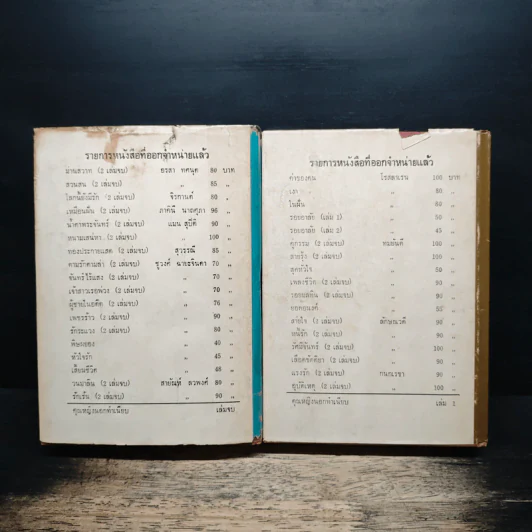 รายการหนังสือที่ออกจำหน่ายแล้ว
ม่านสวาท (2 เล่มจบ) อรสา ทศนุต 80 บาท
สวนสน (2 เล่มจบ) " 85 "
โลกนี้ยังมีรัก (2 เล่มจบ) จิรกานต์ 80 "
เหมือนฝัน (2 เล่มจบ) ภาคินี นาถศุภา 96 "
น้ำตาพระจันทร์ (2 เล่มจบ) แมน สุปิติ 90 "
(2 เล่มจบ) " 100 "
ทองประกายแสด (2 เล่มจบ) สุวรรณี 85 "
ตามรักตามล่า (2 เล่มจบ) ชูวงศ์ ฉายะจินดา 70 "
จันทร์ไร้แสง (2 เล่มจบ) " 70 "
เจ้าสาวเรือพ่วง (2 เล่มจบ) " 70 "
ผู้ชายในอดีต (2 เล่มจบ) " 76 "
เพชรร้าว (2 เล่มจบ) " 90 "
รักระแวง (2 เล่มจบ) " 80 "
พิษกลอง " 40 "
หัวใจรัก " 45 "
เสี้ยนชีวิต " 48 "
วนมาลิน (2 เล่มจบ) สายัณห์ ลวพงศ์ 80 "
รักเร้น (2 เล่มจบ) " 90 "
คุณหญิงนอกทำเนียบ เล่มจบ
รายการหนังสือที่ออกจำหน่ายแล้ว
ค่าของคน โรสลาเรน 100 บาท
เงา " 80 "
ในฝัน " 60 "
รอยอาลัย (เล่ม 1) " 50 "
รอยอาลัย (เล่ม 2) " 45 "
คู่กรรม (2 เล่มจบ) ทมยันตี 100 "
(2 เล่มจบ) " 100 "
สุดหัวใจ " 50 "
เพลงชีวิต (2 เล่มจบ) " 90 "
(2 เล่มจบ) " 90 "
ยอดอนงค์ " 50 "
สายใจ (2 เล่มจบ) ลักษณวดี 90 "
(2 เล่มจบ) " 90 "
รัศมีจันทร์ (2 เล่มจบ) " 100 "
เลือดขัตติยา (2 เล่มจบ) " 90 "
แรงรัก (2 เล่มจบ) กนกเรขา 90 "
อุบัติเหตุ (2 เล่มจบ) " 100 "
คุณหญิงนอกทำเนียบ เล่ม 1